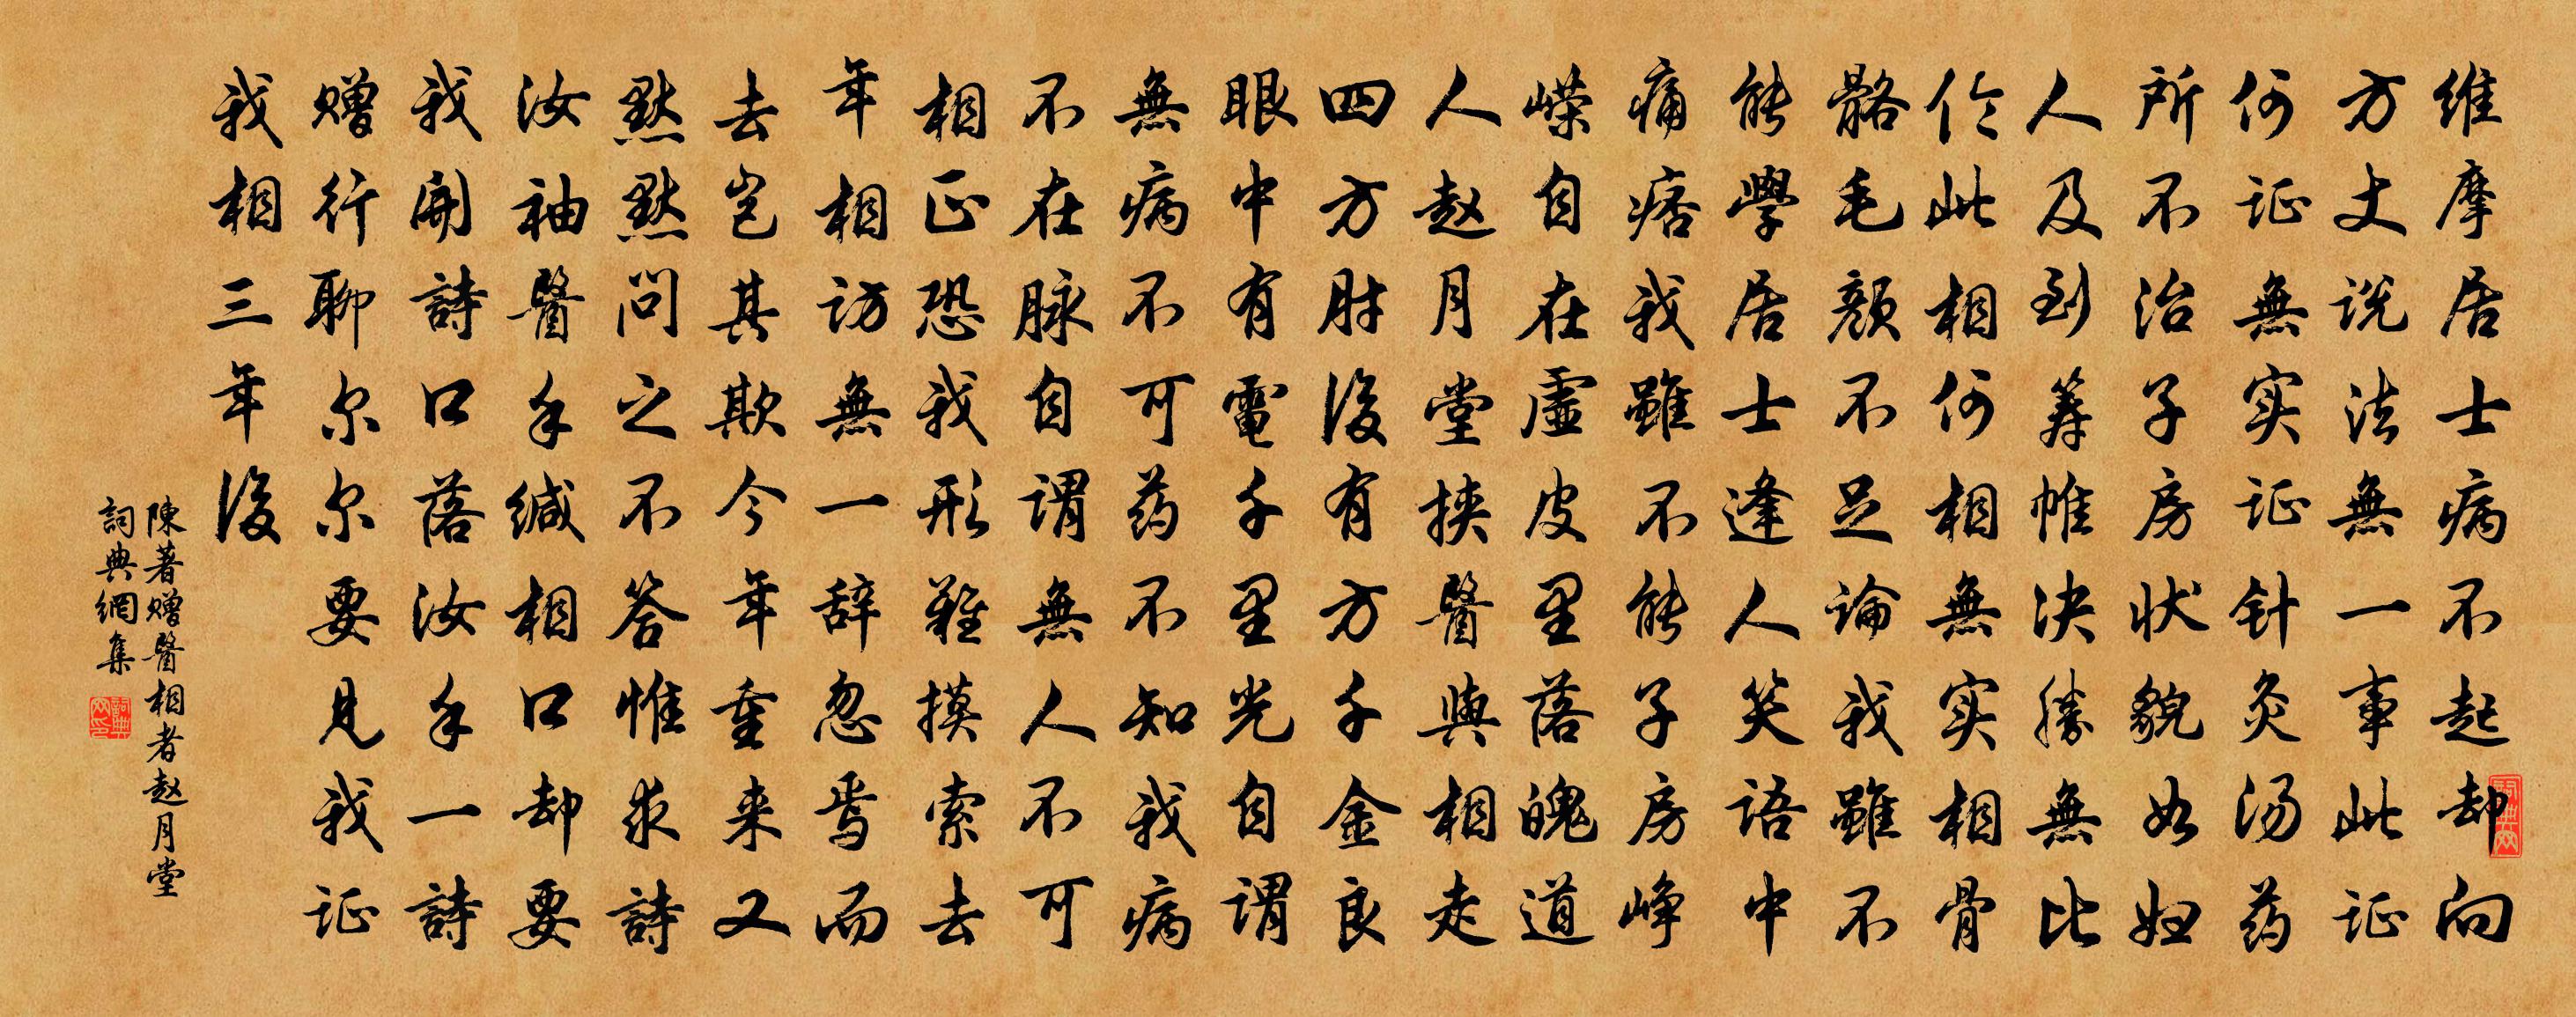 维摩居士病不起却向
方丈说法無一事此证
何证無实证针灸汤药
所不治子房状貌如妇
人及到筹帷决胜無比
伦此相何相無实相骨
骼毛颜不足論我雖不
能學居士逢人笑语中
痛痞我雖不能子房峥
嵘自在虚皮里落魄道
人赵月堂挟醫與相走
四方肘後有方千金良
眼中有電千里光自谓
無病不可药不知我病
不在脉自谓無人不可
相正恐我形難摸索去
年相访無一辞忽焉而
去岂其欺今年重来又
默默問之不答惟求詩
汝袖醫手缄相口却要
我開詩口落汝手一詩
赠行聊尔尔要見我证
我相三年後
陳著赠醫相者赵月堂
詞典網集
詞典网印
詞典网